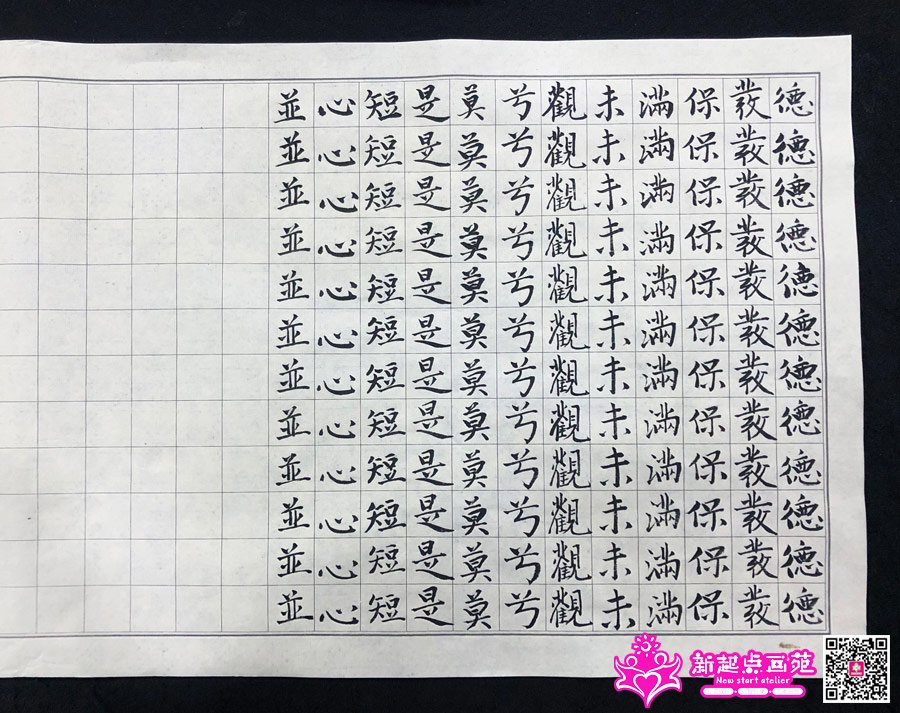 德德德德德德德德德德德德
保保保保保保保保保保保保
滿滿滿滿滿滿滿滿滿滿滿滿
未未未未未未未未未未未未
觀觀觀觀觀觀觀觀觀觀觀觀
兮兮兮兮兮兮兮兮兮兮兮兮
莫莫莫莫莫莫莫莫莫莫莫莫
是是是是是是是是是是是是
短短短短短短短短短短短短
心心心心心心心心心心心心
並並並並並並並並並並並並
新起点画苑
New start atelier